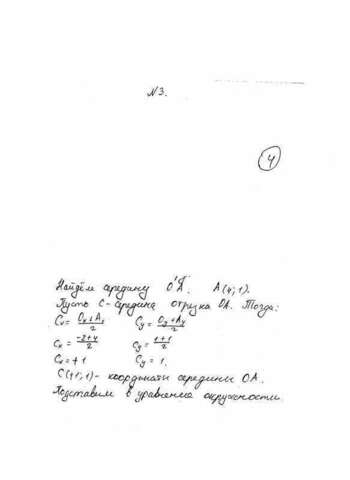 №3.
4
Найдём середину O'A. A(4;1).
Пусть C - середина отрузка OA. Тогда:
Cx = (Ox + Ax)/2   Cy = (Oy + Ay)/2
Cx = (-2+4)/2   Cy = (1+1)/2
Cx = +1   Cy = 1.
C(+1;1) - координаты середины OA.
Подставим в уравнение окружности.